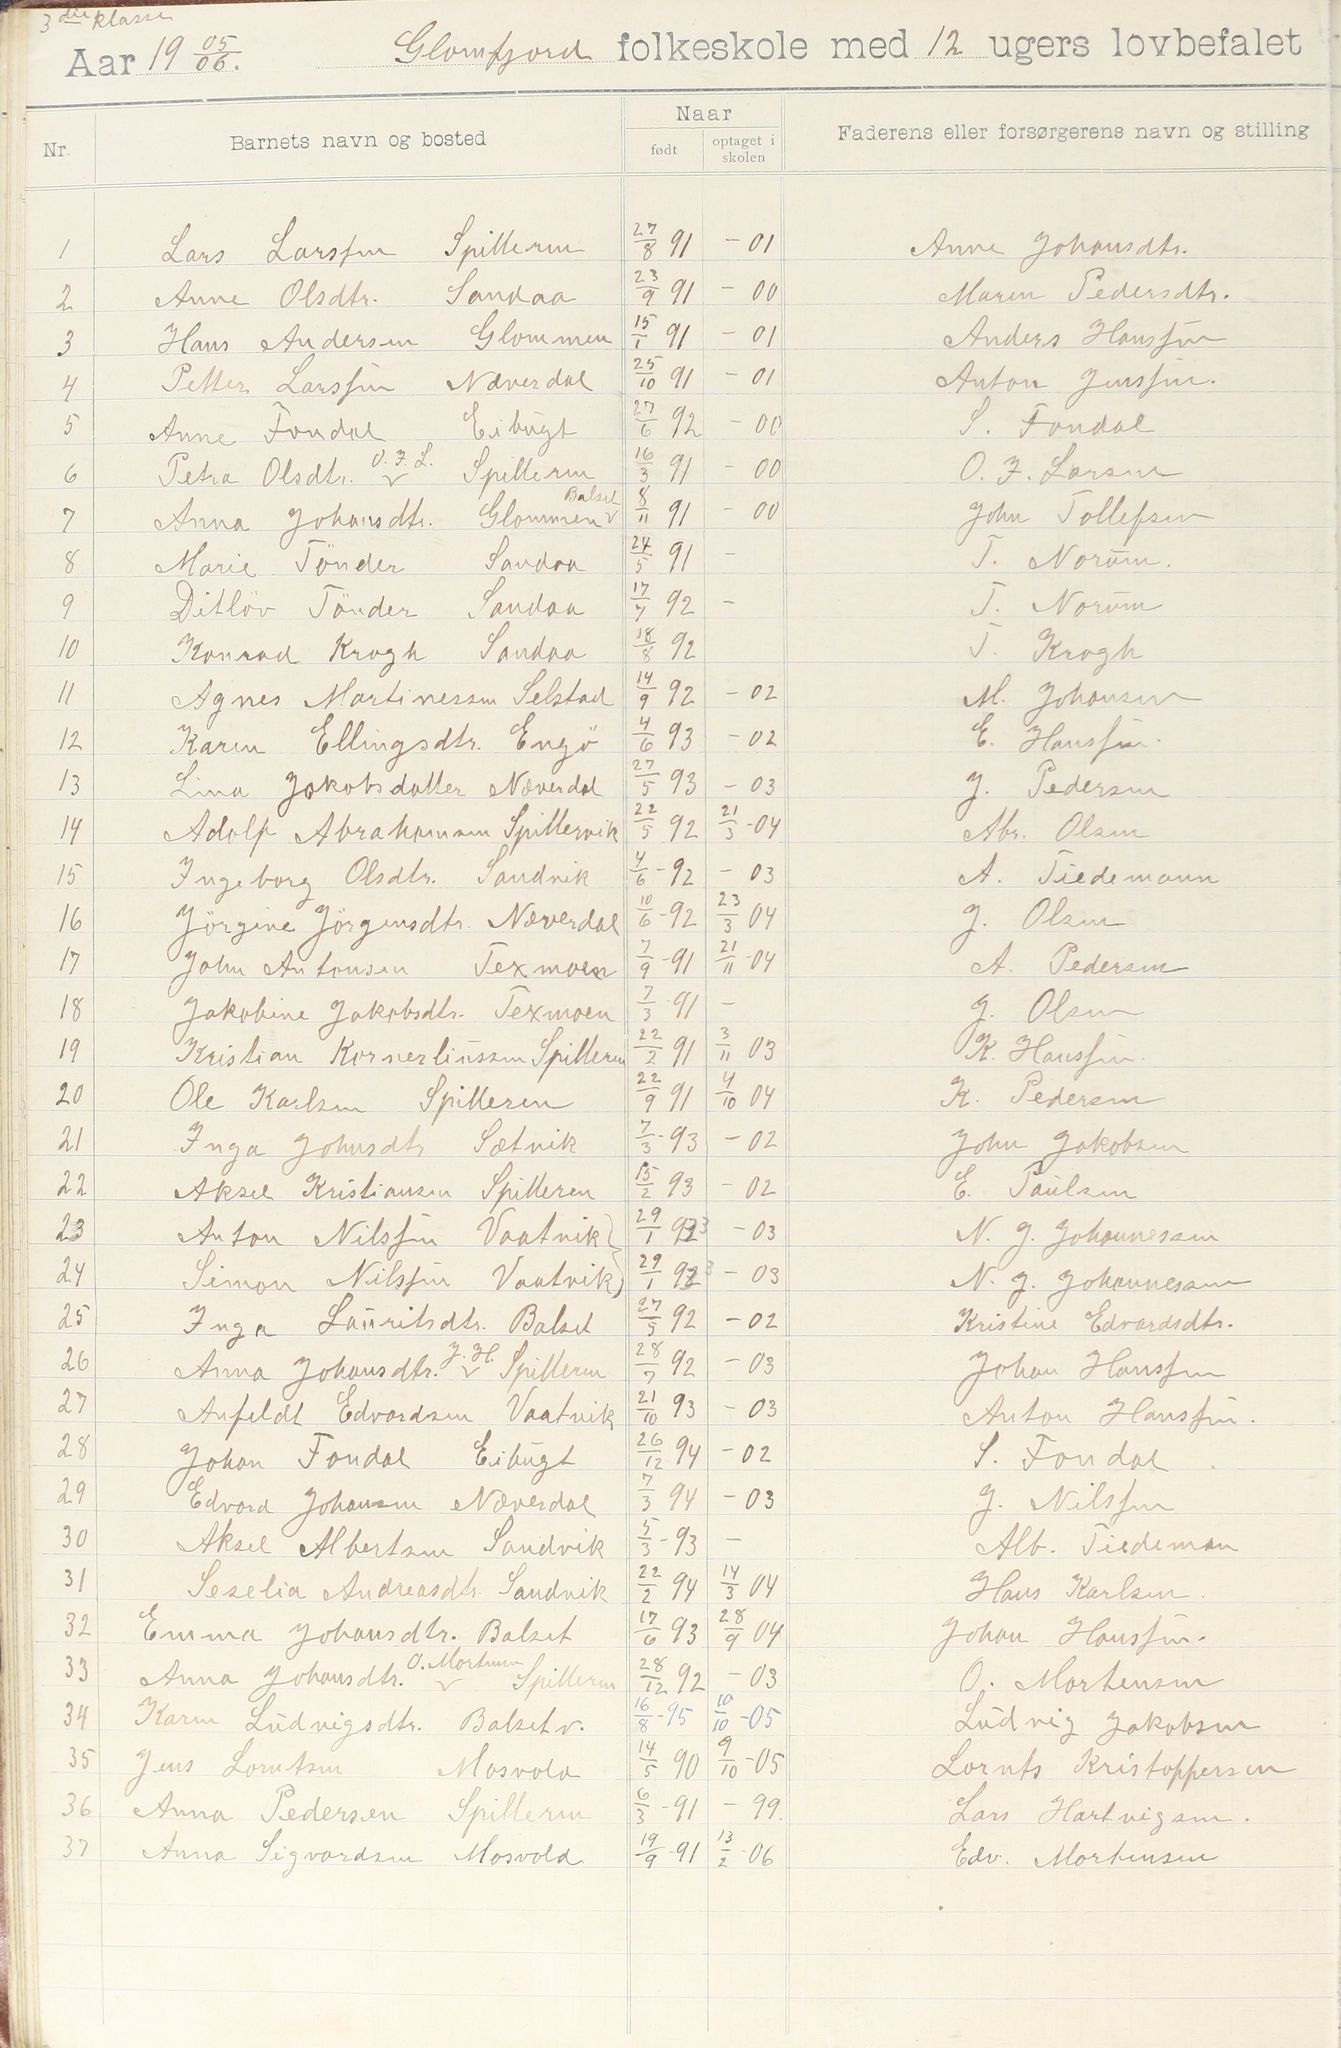 3die klasse
Aar 19 05/06. Glomfjord folkeskole med 12 ugers lovbefalet
Nr. Barnets navn og bosted Naar født optaget i skolen Faderens eller forsørgerens navn og stilling
1 Lars Larssen Spilleren 27/8 91 - 01 Anne Johansdtr.
2 Anne Olsdtr. Sandaa 23/9 91 - 00 Maren Pedersdtr.
3 Hans Andersen Glommen 15/1 91 - 01 Anders Hanssen
4 Petter Larssen Næverdal 25/10 91 - 01 Anton Jenssen.
5 Anne Fondal Eibugt 27/6 92 - 00 S. Fondal
6 Petra Olsdtr. O. F. L. Spilleren 16/3 91 - 00 O. F. Larsen
7 Anna Johansdtr. Glommen Balset 8/11 91 - 00 John Tollefsen
8 Marie Tönder Sandaa 24/5 91 - T. Norum.
9 Ditlöv Tönder Sandaa 17/7 92 - T. Norum
10 Konrad Krogh Sandaa 18/8 92 T. Krogh
11 Agnes Martinessen Selstad 14/9 92 - 02 M. Johansen
12 Karen Ellingsdtr. Engö 4/6 93 - 02 E. Hanssen.
13 Lina Jakobsdatter Næverdal 27/5 93 - 03 J. Pedersen
14 Adolf Abrahamsen Spillervik 22/5 92 21/3 - 04 Abr. Olsen
15 Ingeborg Olsdtr. Sandvik 4/6 - 92 - 03 A. Tiedemann
16 Jörgine Jörgensdtr. Næverdal 10/6 - 92 23/3 04 J. Olsen
17 John Antonsen Texmoen 7/9 - 91 21/11 - 04 A. Pedersen
18 Jakobine Jakobsdtr. Texmoen 7/3 91 - J. Olsen
19 Kristian Kornerliussen Spilleren 22/2 91 3/11 03 K. Hanssen.
20 Ole Karlsen Spilleren 22/9 91 4/10 04 K. Pedersen
21 Inga Johnsdtr Sætvik 7/3 - 93 - 02 John Jakobsen
22 Aksel Kristiansen Spilleren 15/2 93 - 02 E. Paulsen
23 Anton Nilssen Vaatvik 29/1 923 - 03 N. J. Johannessen
24 Simon Nilssen Vaatvik 29/1 923 - 03 N. J. Johannessen
25 Inga Lauritsdtr. Balset 27/5 92 - 02 Kristine Edvardsdtr.
26 Anna Johansdtr. J. H. Spilleren 28/7 92 - 03 Johan Hanssen
27 Anfeldt Edvardsen Vaatvik 21/10 93 - 03 Anton Hanssen.
28 Johan Fondal Eibugt 26/12 94 - 02 S. Fondal
29 Edvard Johansen Næverdal 7/3 94 - 03 J. Nilssen
30 Aksel Albertsen Sandvik 5/3 - 93 - Alb. Tiedeman
31 Seselia Andreasdtr. Sandvik 22/2 94 14/3 04 Hans Karlsen.
32 Emma Johansdtr. Balset 17/6 93 28/9 04 Johan Hanssen.
33 Anna Johansdtr. O. Mortensen Spilleren 28/12 92 - 03 O. Mortensen
34 Karen Ludvigsdtr. Balsetv. 16/8 - 95 10/10 - 05 Ludvig Jakobsen
35 Jens Lorntsen Mosvold 14/5 90 9/10 - 05 Lornts Kristoppersen
36 Anna Pedersen Spilleren 6/3 - 91 - 99. Lars Hartvigsen.
37 Anna Sigvardsen Mosvold 19/9 - 91 13/2 - 06 Edv. Mortensen